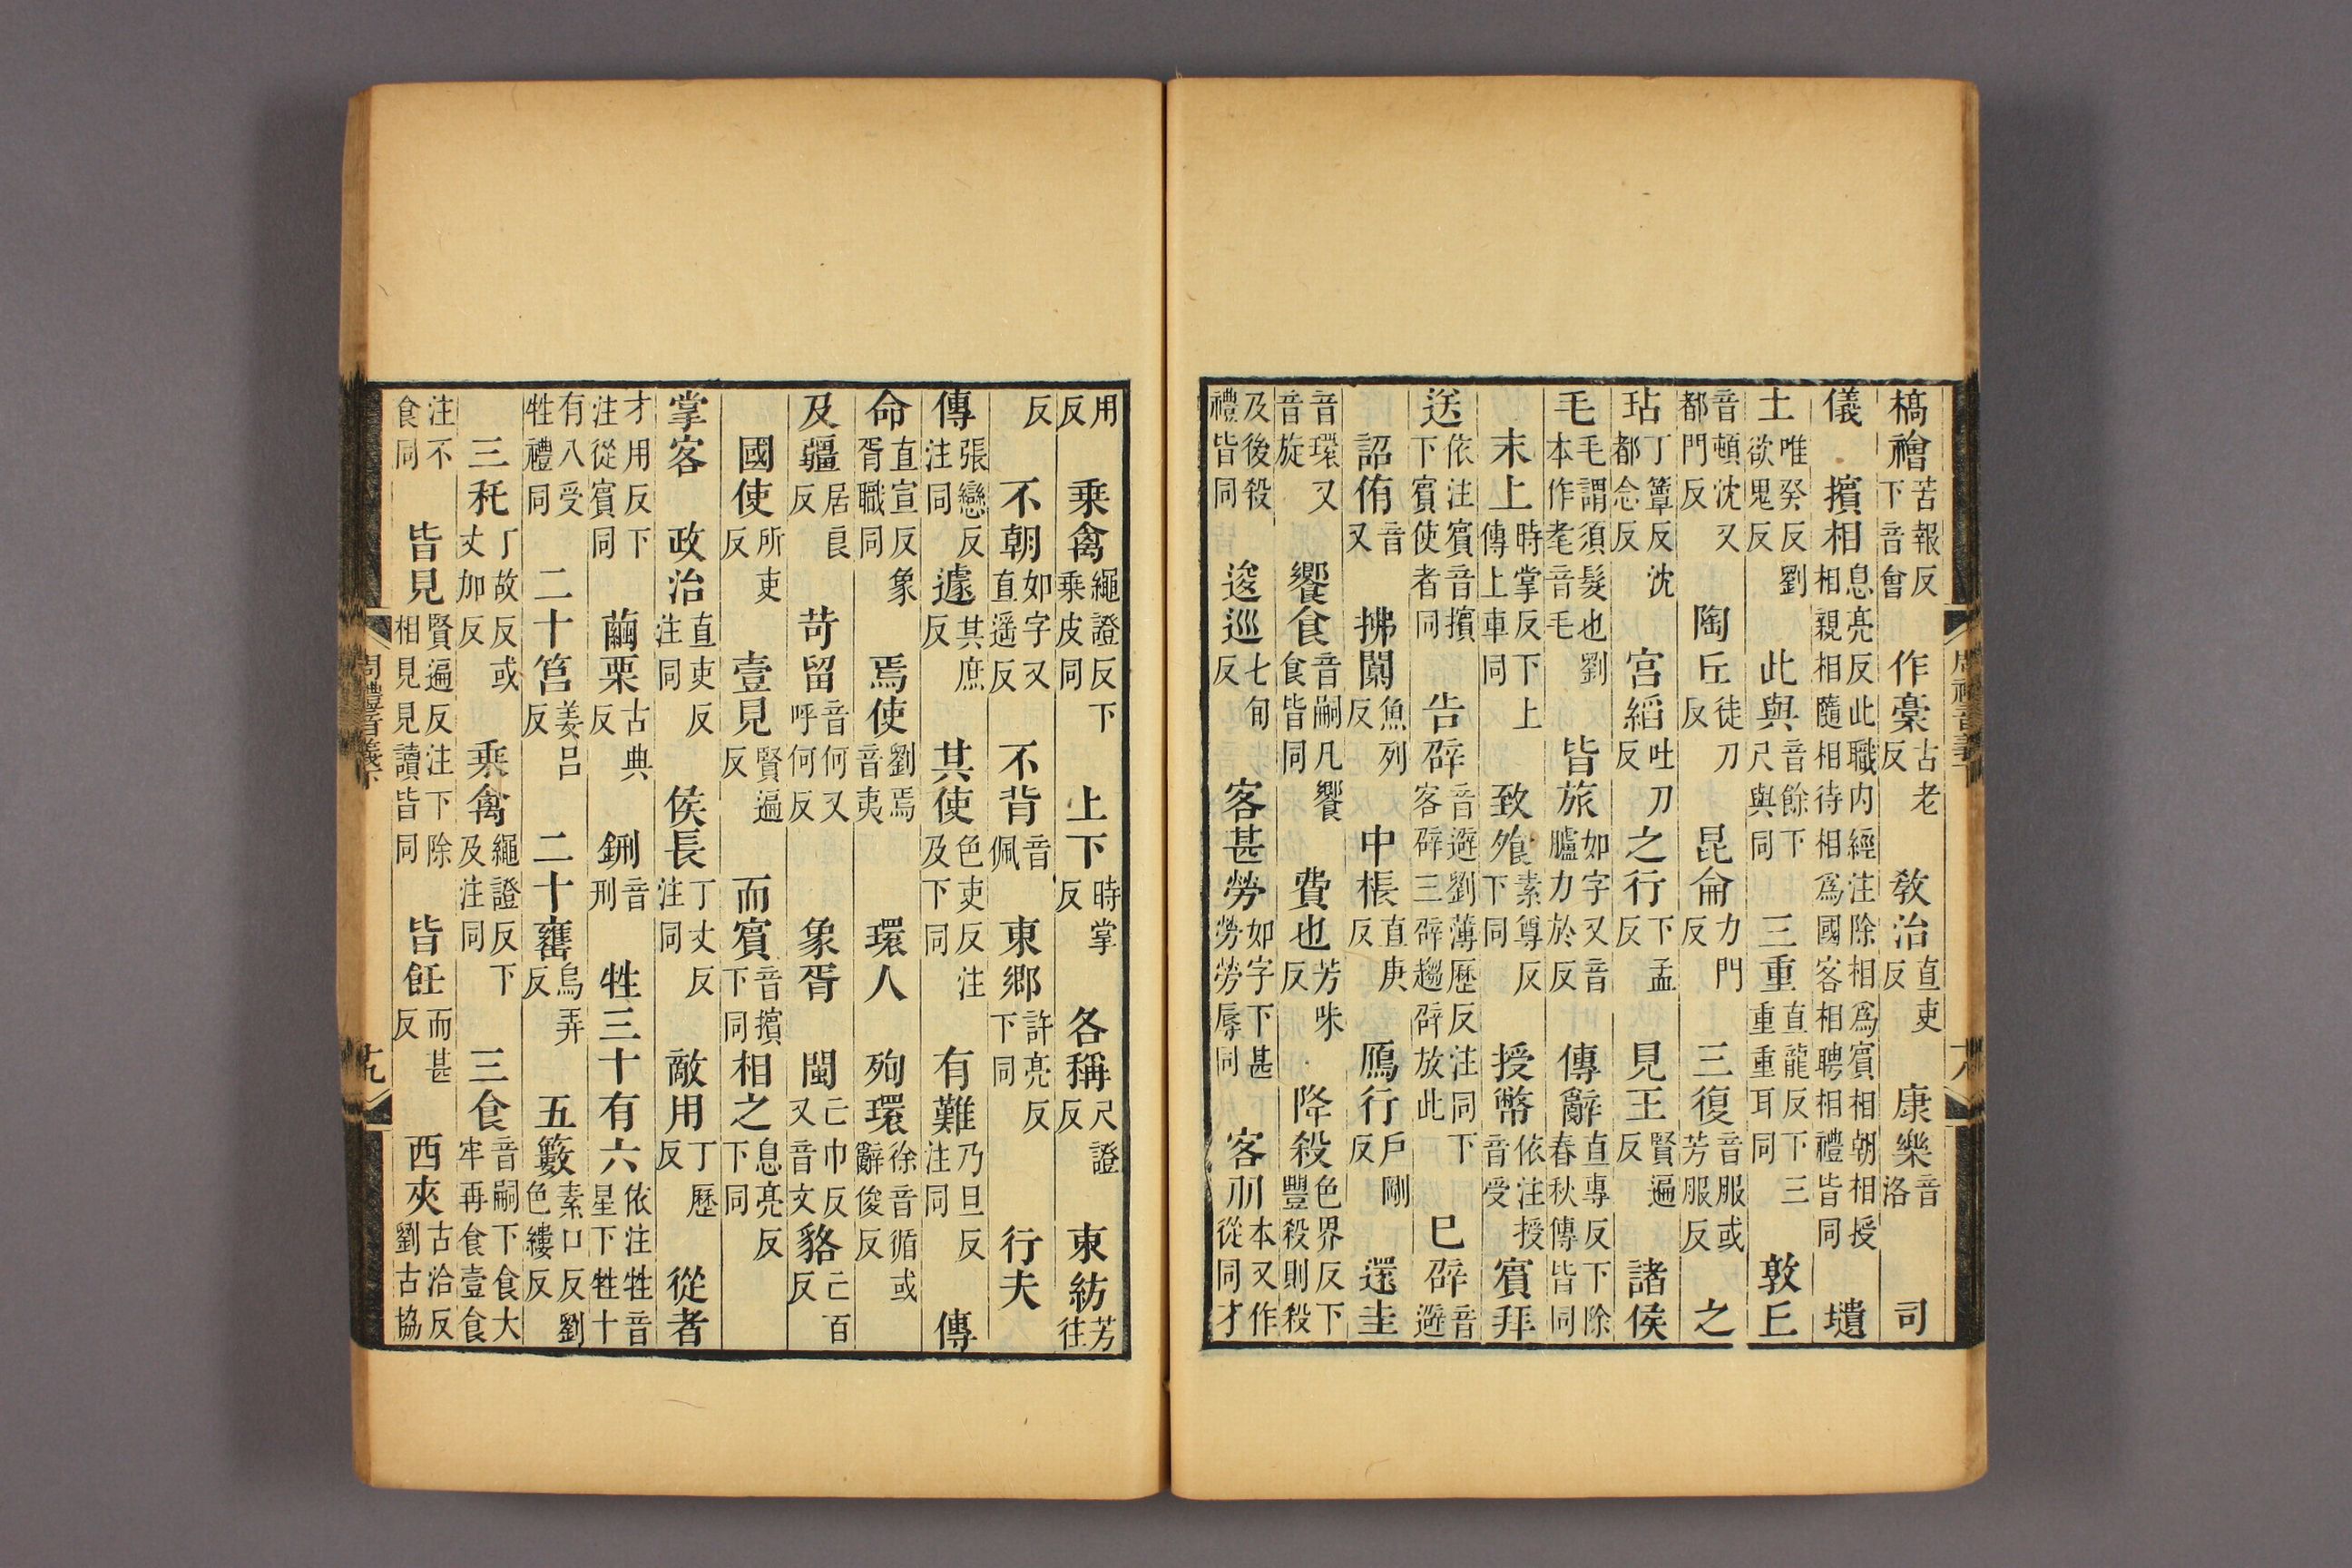 槁禬苦報反下音會 作槀古老反 敎治直吏反 康樂音洛 司
儀 擯相息亮反此職内經注除相爲賓相朝相授相親相隨相待相爲國客相聘相禮皆同 壝
土唯癸反劉欲鬼反 此與音餘下尺與同 三重直龍反下三重重重耳同 敦丘
音頓沈又都門反 陶丘徒刀反 昆侖力門反 三復音服或芳服反 之
玷丁簟反沈都念反 宫縚吐刀反 之行下孟反 見王賢遍反 諸侯
毛毛謂須髮也劉本作耄音毛 皆旅如字又音臚力於反 傳辭直專反下除春秋傳皆同
末上時掌反下上傳上車同 致飱素尊反下同 授幣依注授音受 賓拜
送依注賓音擯下賓使者同 告辟音避劉薄歷反注同下客辟三辟趨辟放此 巳辟音避
詔侑音又 拂闑魚列反 中棖直庚反 鴈行戶剛反 還圭
音環又音旋 饗食音嗣凡饗食皆同 費也芳味反 降殺色界反下豐殺則殺
及後殺禮皆同 逡巡七旬反 客甚勞如字下甚勞勞辱同 客从本又作從同才
周禮音義下 十八
用反 乘禽繩證反下乘皮同 上下時掌反 各稱尺證反 東紡芳往
反 不朝如字又直遥反 不背音佩 東郷許亮反下同 行夫
傳張戀反注同 遽其庶反 其使色吏反注及下同 有難乃旦反注同 傳
命直宣反象胥職同 焉使劉焉音夷 環人 殉環徐音循或辭俊反
及疆居良反 苛留音何又呼何反 象胥 閩亡巾反又音文 貉亡百反
國使所吏反 壹見賢遍反 而賓音擯下同 相之息亮反下同
掌客 政治直吏反注同 侯長丁丈反注同 敵用丁歷反 從者
才用反下注從賓同 繭栗古典反 鉶音刑 牲三十有六依注牲音星下牲十
有八受牲禮同 二十筥姜吕反 二十罋烏弄反 五籔素口反劉色縷反
三秅丁故反或丈加反 乘禽繩證反下及注同 三食音嗣下食大牢再食壹食
注不食同 皆見賢遍反注下除相見見讀皆同 皆飪而甚反 西夾古洽反劉古協
周禮音義下 十九